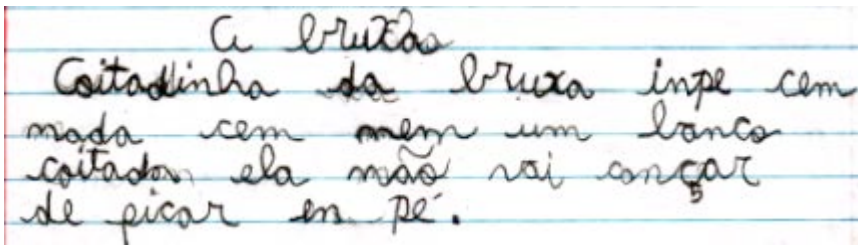 A bruxa
Coitadinha da bruxa inpe cem
nada cem nem um banco
coitada ela não vai cançar
de picar en pé.